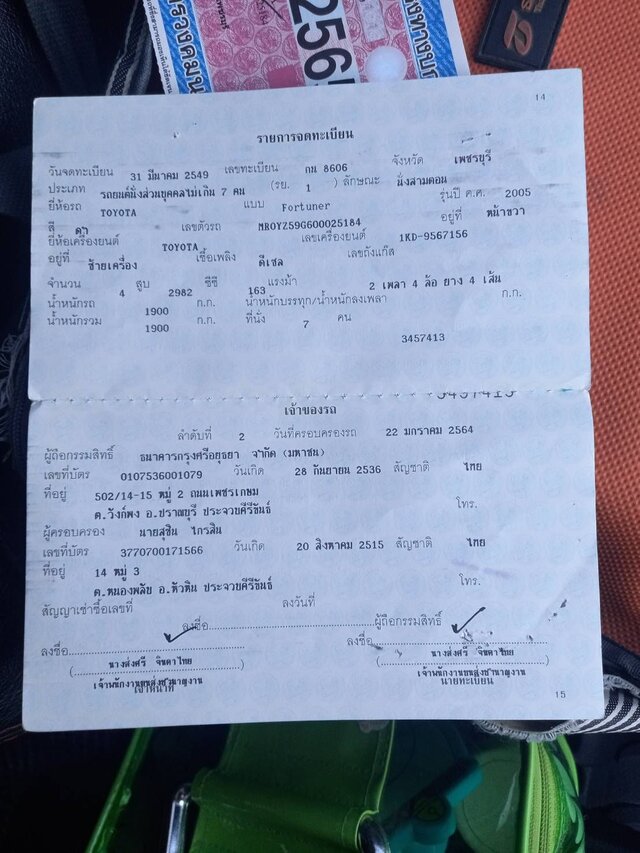 256
14
รายการจดทะเบียน
วันจดทะเบียน 31 มีนาคม 2549 เลขทะเบียน กน 8606 จังหวัด เพชรบุรี
ประเภท รถยนต์นั่งส่วนบุคคลไม่เกิน 7 คน (รย. 1 ) ลักษณะ นั่งสามตอน
ยี่ห้อรถ TOYOTA แบบ Fortuner รุ่นปี ค.ศ. 2005
สี ดำ เลขตัวรถ MR0YZ59G600025184 อยู่ที่ หน้าขวา
ยี่ห้อเครื่องยนต์ TOYOTA เลขเครื่องยนต์ 1KD-9567156
อยู่ที่ ซ้ายเครื่อง เชื้อเพลิง ดีเซล เลขถังแก๊ส
จำนวน 4 สูบ 2982 ซีซี 163 แรงม้า 2 เพลา 4 ล้อ ยาง 4 เส้น
น้ำหนักรถ 1900 ก.ก. น้ำหนักบรรทุก/น้ำหนักลงเพลา ก.ก.
น้ำหนักรวม 1900 ก.ก. ที่นั่ง 7 คน
3457413
3457413
เจ้าของรถ
ลำดับที่ 2 วันที่ครอบครองรถ 22 มกราคม 2564
ผู้ถือกรรมสิทธิ์ ธนาคารกรุงศรีอยุธยา จำกัด (มหาชน)
เลขที่บัตร 0107536001079 วันเกิด 28 กันยายน 2536 สัญชาติ ไทย
ที่อยู่ 502/14-15 หมู่ 2 ถนนเพชรเกษม
ต.วังก์พง อ.ปราณบุรี ประจวบคีรีขันธ์ โทร.
ผู้ครอบครอง นายสุชิน ไกรสิน
เลขที่บัตร 3770700171566 วันเกิด 20 สิงหาคม 2515 สัญชาติ ไทย
ที่อยู่ 14 หมู่ 3
ต.หนองพลับ อ.หัวหิน ประจวบคีรีขันธ์ โทร.
สัญญาเช่าซื้อเลขที่ ลงวันที่
ลงชื่อ ผู้ถือกรรมสิทธิ์
ลงชื่อ ลงชื่อ
(นางส่งศรี จินดาไทย) (นางส่งศรี จินดาไทย)
เจ้าพนักงานขนส่งชำนาญงาน เจ้าพนักงานขนส่งชำนาญงาน
เจ้าหน้าที่ นายทะเบียน
15